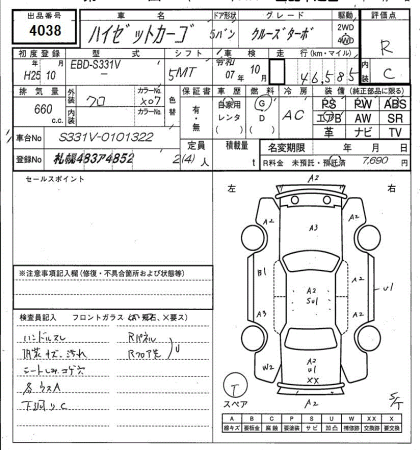 出品番号 車名 ドア形状 グレード 駆動 評価点
4038 ハイゼットカーゴ 5バン クルーズターボ 2WD 4WD R
初度登録 型式 シフト 車検 走行(km・マイル)
H25 10 EBD-S331V 5MT 令和 07年 10月 46,585 C
排気量 外装 カラーNo. 色替 保証書 車歴 燃料 冷房 装備(純正部品に限る)
660 c.c. クロ X07 有・無 自家用 レンタ G D AC PS PW ABS
内装 カラーNo. エアB AW SR
革 ナビ TV
車台No S331V-0101322 定員 積載量 名変期限 年 月 日
登録No 札幌483テ4852 2(4)人 t R料金 未預託・預託済 7,690 円
セールスポイント
左 右
A2
A3
B1
A2
S01
A3
U1
A2
W2
A2
U1
XX
A2
T
スペア
S/T
※注意事項記入欄(修復・不具合箇所および状態等)
検査員記入 フロントガラス
ハンドルスレ Rパネル
内装キズ、汚れ Rフロア
シートしみコゲ穴 U
各ウスA
下廻りC
A B C P S U W X XX
線キズ 要板金 腐蝕 要塗装 サビ 凹凸 補修跡 要交換